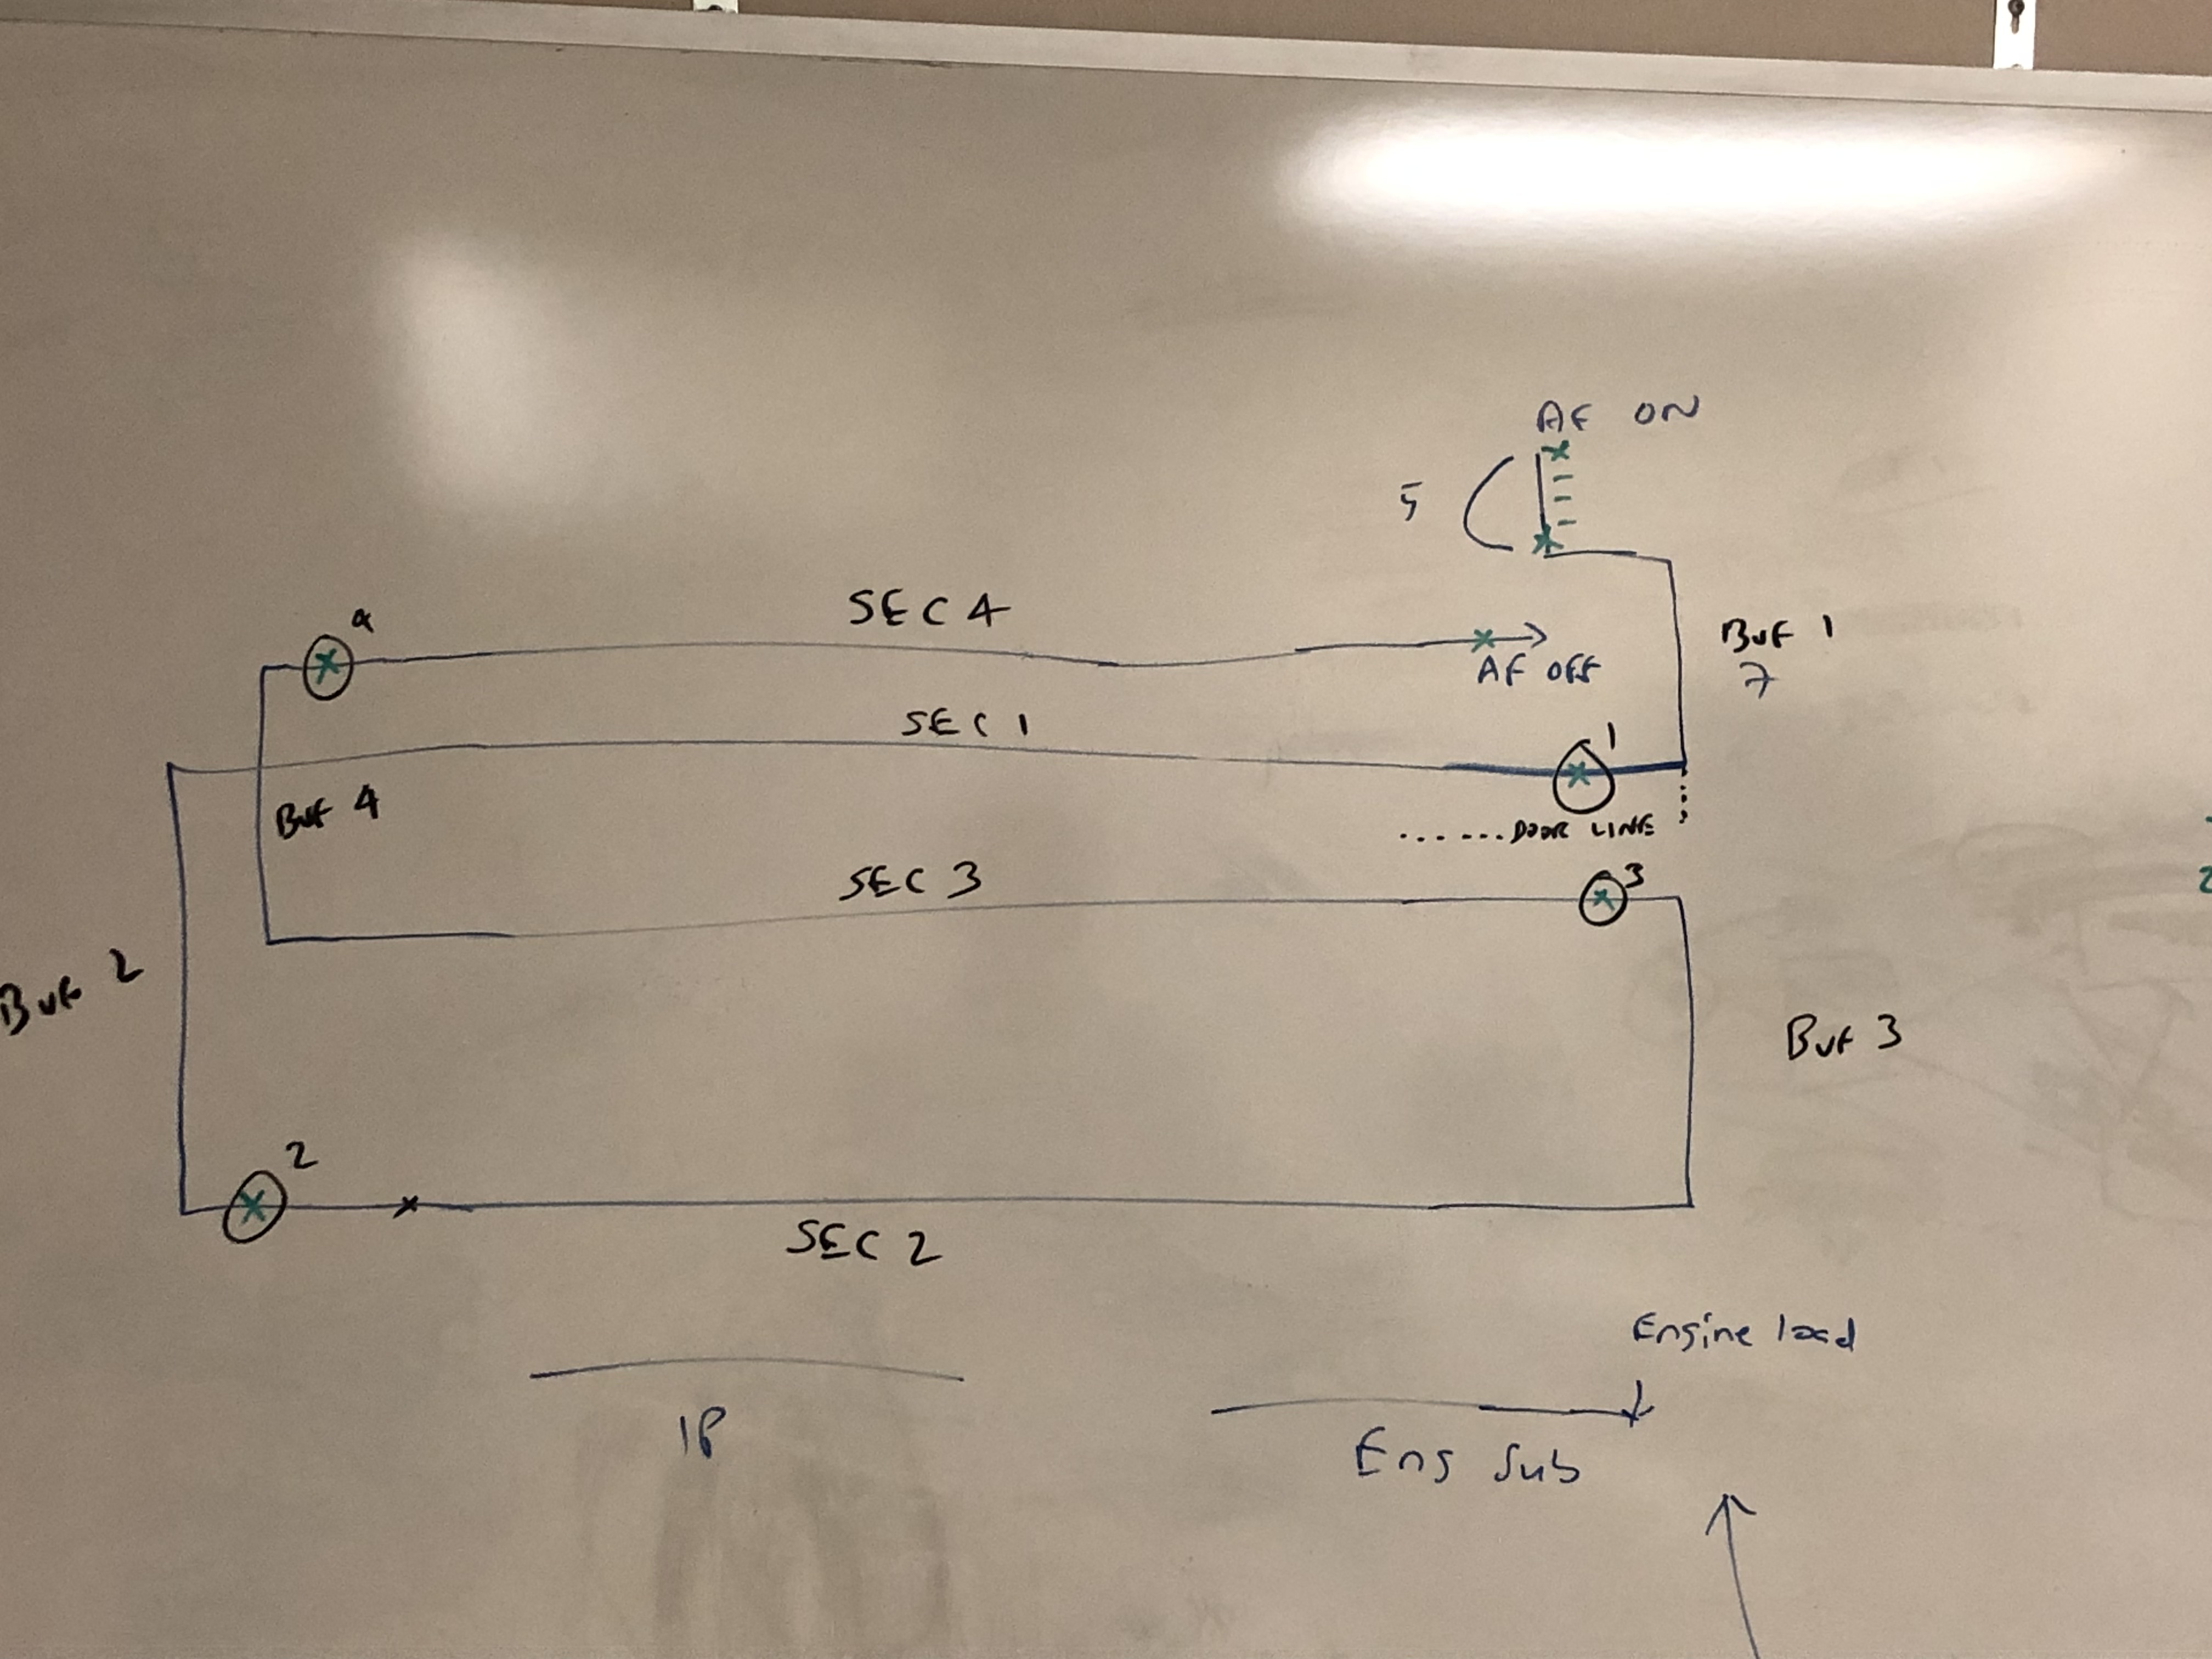 AF ON
5
SEC 4
4
BUF 1
7
AF OFF
SEC 1
1
BUF 4
...... DOOR LINE
SEC 3
3
BUF 2
BUF 3
2
SEC 2
Engine load
IP
Eng Sub
2